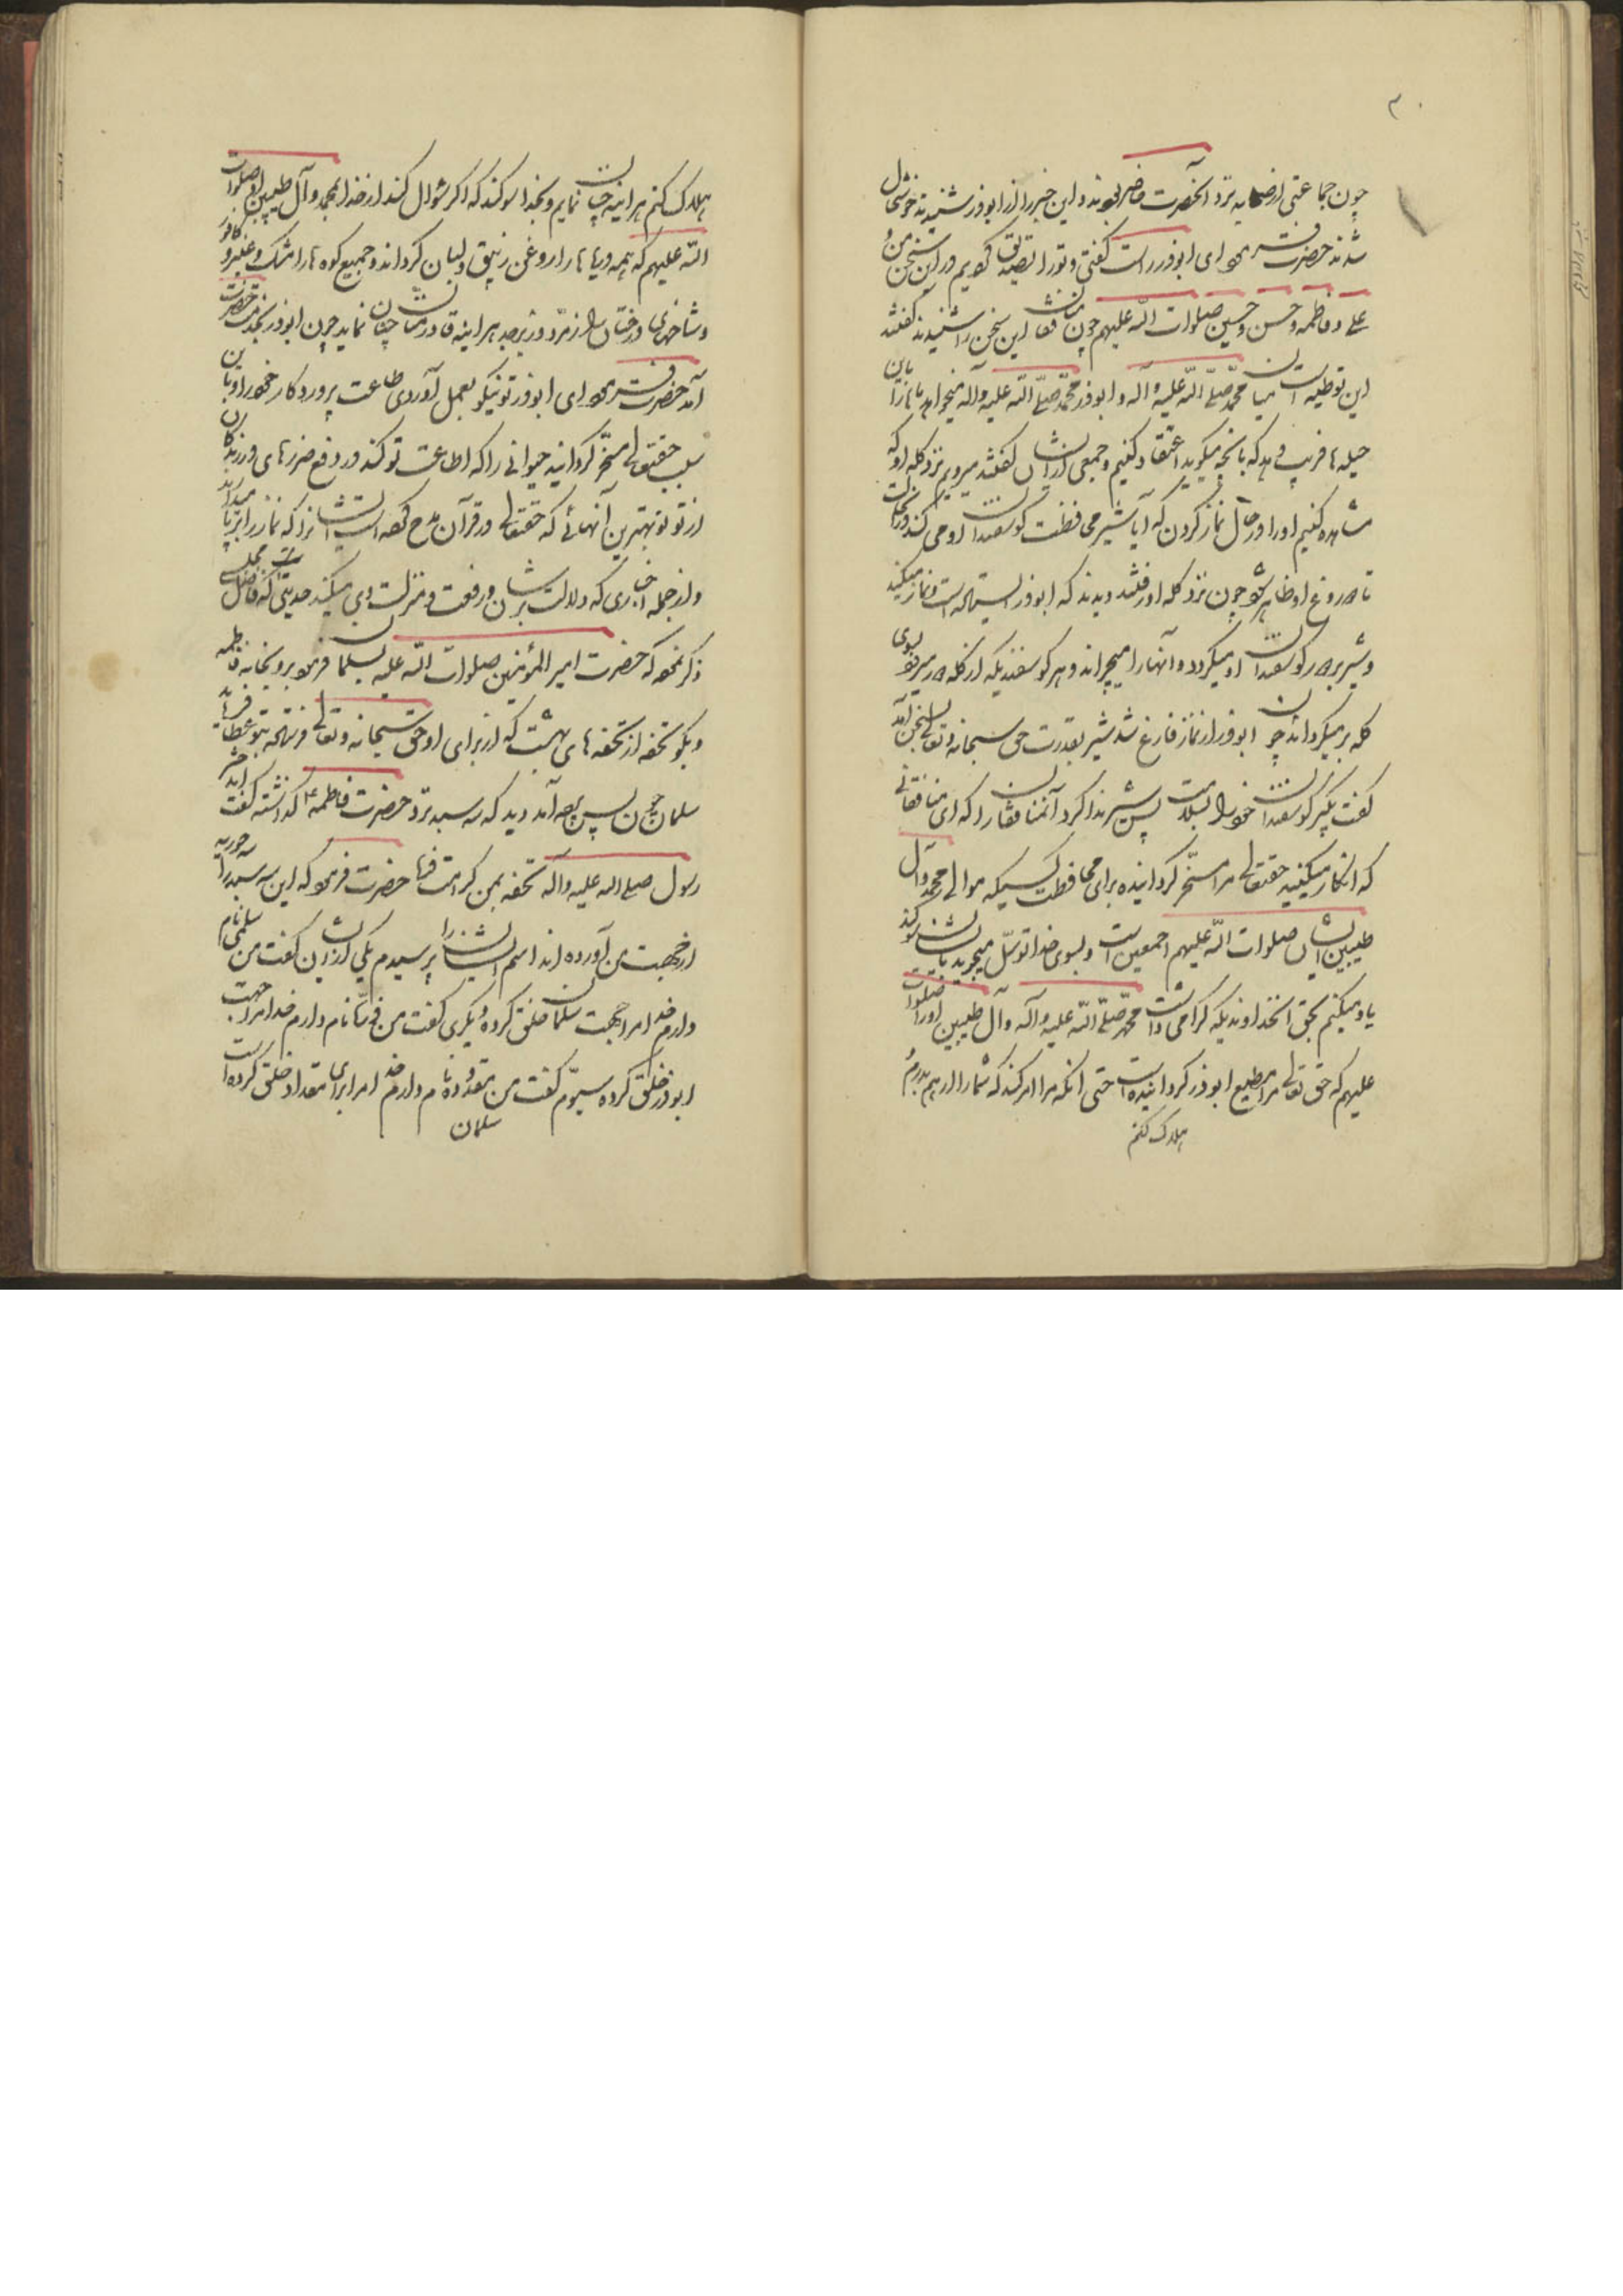 چون جماعتی از صحابه نزد آنحضرت حاضر بودند و این خبر را از ابوذر شنیدند خوشحال
شدند حضرت فرمود ای ابوذر راست گفتی و تو را تصدیق کردیم در این سخن من و
علی و فاطمه و حسن و حسین صلوات الله علیهم چون منافقان این سخن را شنیدند گفتند
این توطیه است میان محمد صلی الله علیه و آله و ابوذر محمد صلی الله علیه و آله میخواهد ما را باین
حیله ها فریب دهد که بآنچه میگوید اعتقاد کنیم و جمعی از ایشان گفتند میرویم نزد گله او که
مشاهده کنیم او را در حال نماز کردن که آیا شیر محافظت گوسفندان او می کند و نگاهبانست
تا دروغ او ظاهر شود چون نزد گله او رفتند دیدند که ابوذر ایستاده است و نماز میکند
و شیر بر دور گوسفندان او میگردد و آنها را میچراند و هر گوسفندیکه از گله دور میرود بسوی
گله بر میگرداند چون ابوذر از نماز فارغ شد شیر بقدرت حق سبحانه و تعالی بسخن آمد
گفت بگیر گوسفندان خود را بسلامت پس شیر ندا کرد آنمنافقان را که ای منافقانی
که انکار میکنید حقتعالی مرا مسخر گردانیده برای محافظت کسیکه موالی محمد و آل
طیبین ایشان صلوات الله علیهم اجمعین است و بسوی خدا توسل میجوید بایشان سوگند
یاد میکنم بحق آنخداوندیکه گرامی داشت محمد صلی الله علیه و آله و آل طیبین او را صلوات الله
علیهم که حق تعالی مرا مطیع ابوذر گردانیده است حتی آنکه مرا امر کند که شما را از هم بدرم و
هلاک کنم
هلاک کنم هر اینه چنان نمایم و بخدا سوگند که اگر سئوال کند از خدا بمحمد و آل طیبین او صلوات
الله علیهم که همه دریاها را روغن زنبق و لبان گرداند و جمیع کوه ها را مشک و عنبر و کافور
و شاخهای درختان را زمرد و زبرجد هر اینه قادر منان چنان نماید چون ابوذر بخدمت حضرت
آمد حضرت فرمود ای ابوذر تو نیکو بعمل آوردی طاعت پروردگار خود را و باین
سبب حقتعالی مسخر گردانید حیوانی را که اطاعت تو کند در دفع ضررهای درندگان
از تو تو بهترین آنهائی که حقتعالی در قرآن مدح کرده است ایشانرا که نماز را برپا میدارند
و از جمله اخباری که دلالت بر شان و رفعت و منزلت وی میکند حدیثی است که فاضل مجلسی
ذکر نموده که حضرت امیر المؤمنین صلوات الله علیه بسلمان فرمود برو بخانه فاطمه
و بگو تحفه از تحفه های بهشت که از برای او حق سبحانه و تعالی فرستاده بتو عطا فرماید
سلمان چون پس پرده آمد دید که سه سبد نزد حضرت فاطمه ع گذاشته گفت ای دختر
رسول صلی الله علیه و آله تحفه بمن کرامت فرما حضرت فرمود که این سه سبد را سه حوریه
از جهت من آورده اند اسم ایشانرا پرسیدم یکی از ایشان گفت من سلمی نام
دارم خدا مرا جهت سلمان خلق کرده و دیگری گفت من ذره نام دارم خدا مرا جهت
ابوذر خلق کرده سیوم گفت من مقدوده نام دارم خدا مرا برای مقداد خلق کرده است
سلمان